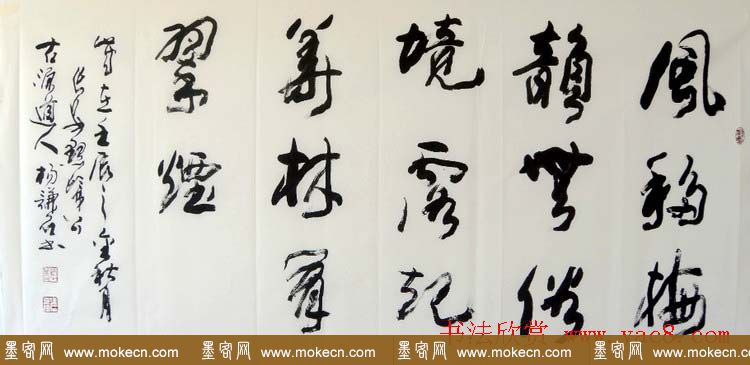 風移梅
韻無俗
境露起
華林
翠煙
歲在壬辰之金秋月
古源道人楊謙
书法欣赏 www.yac8.com
墨客网 www.mokecn.com 墨客网 www.mokecn.com 墨客网 www.mokecn.com 墨客网 www.mokecn.com